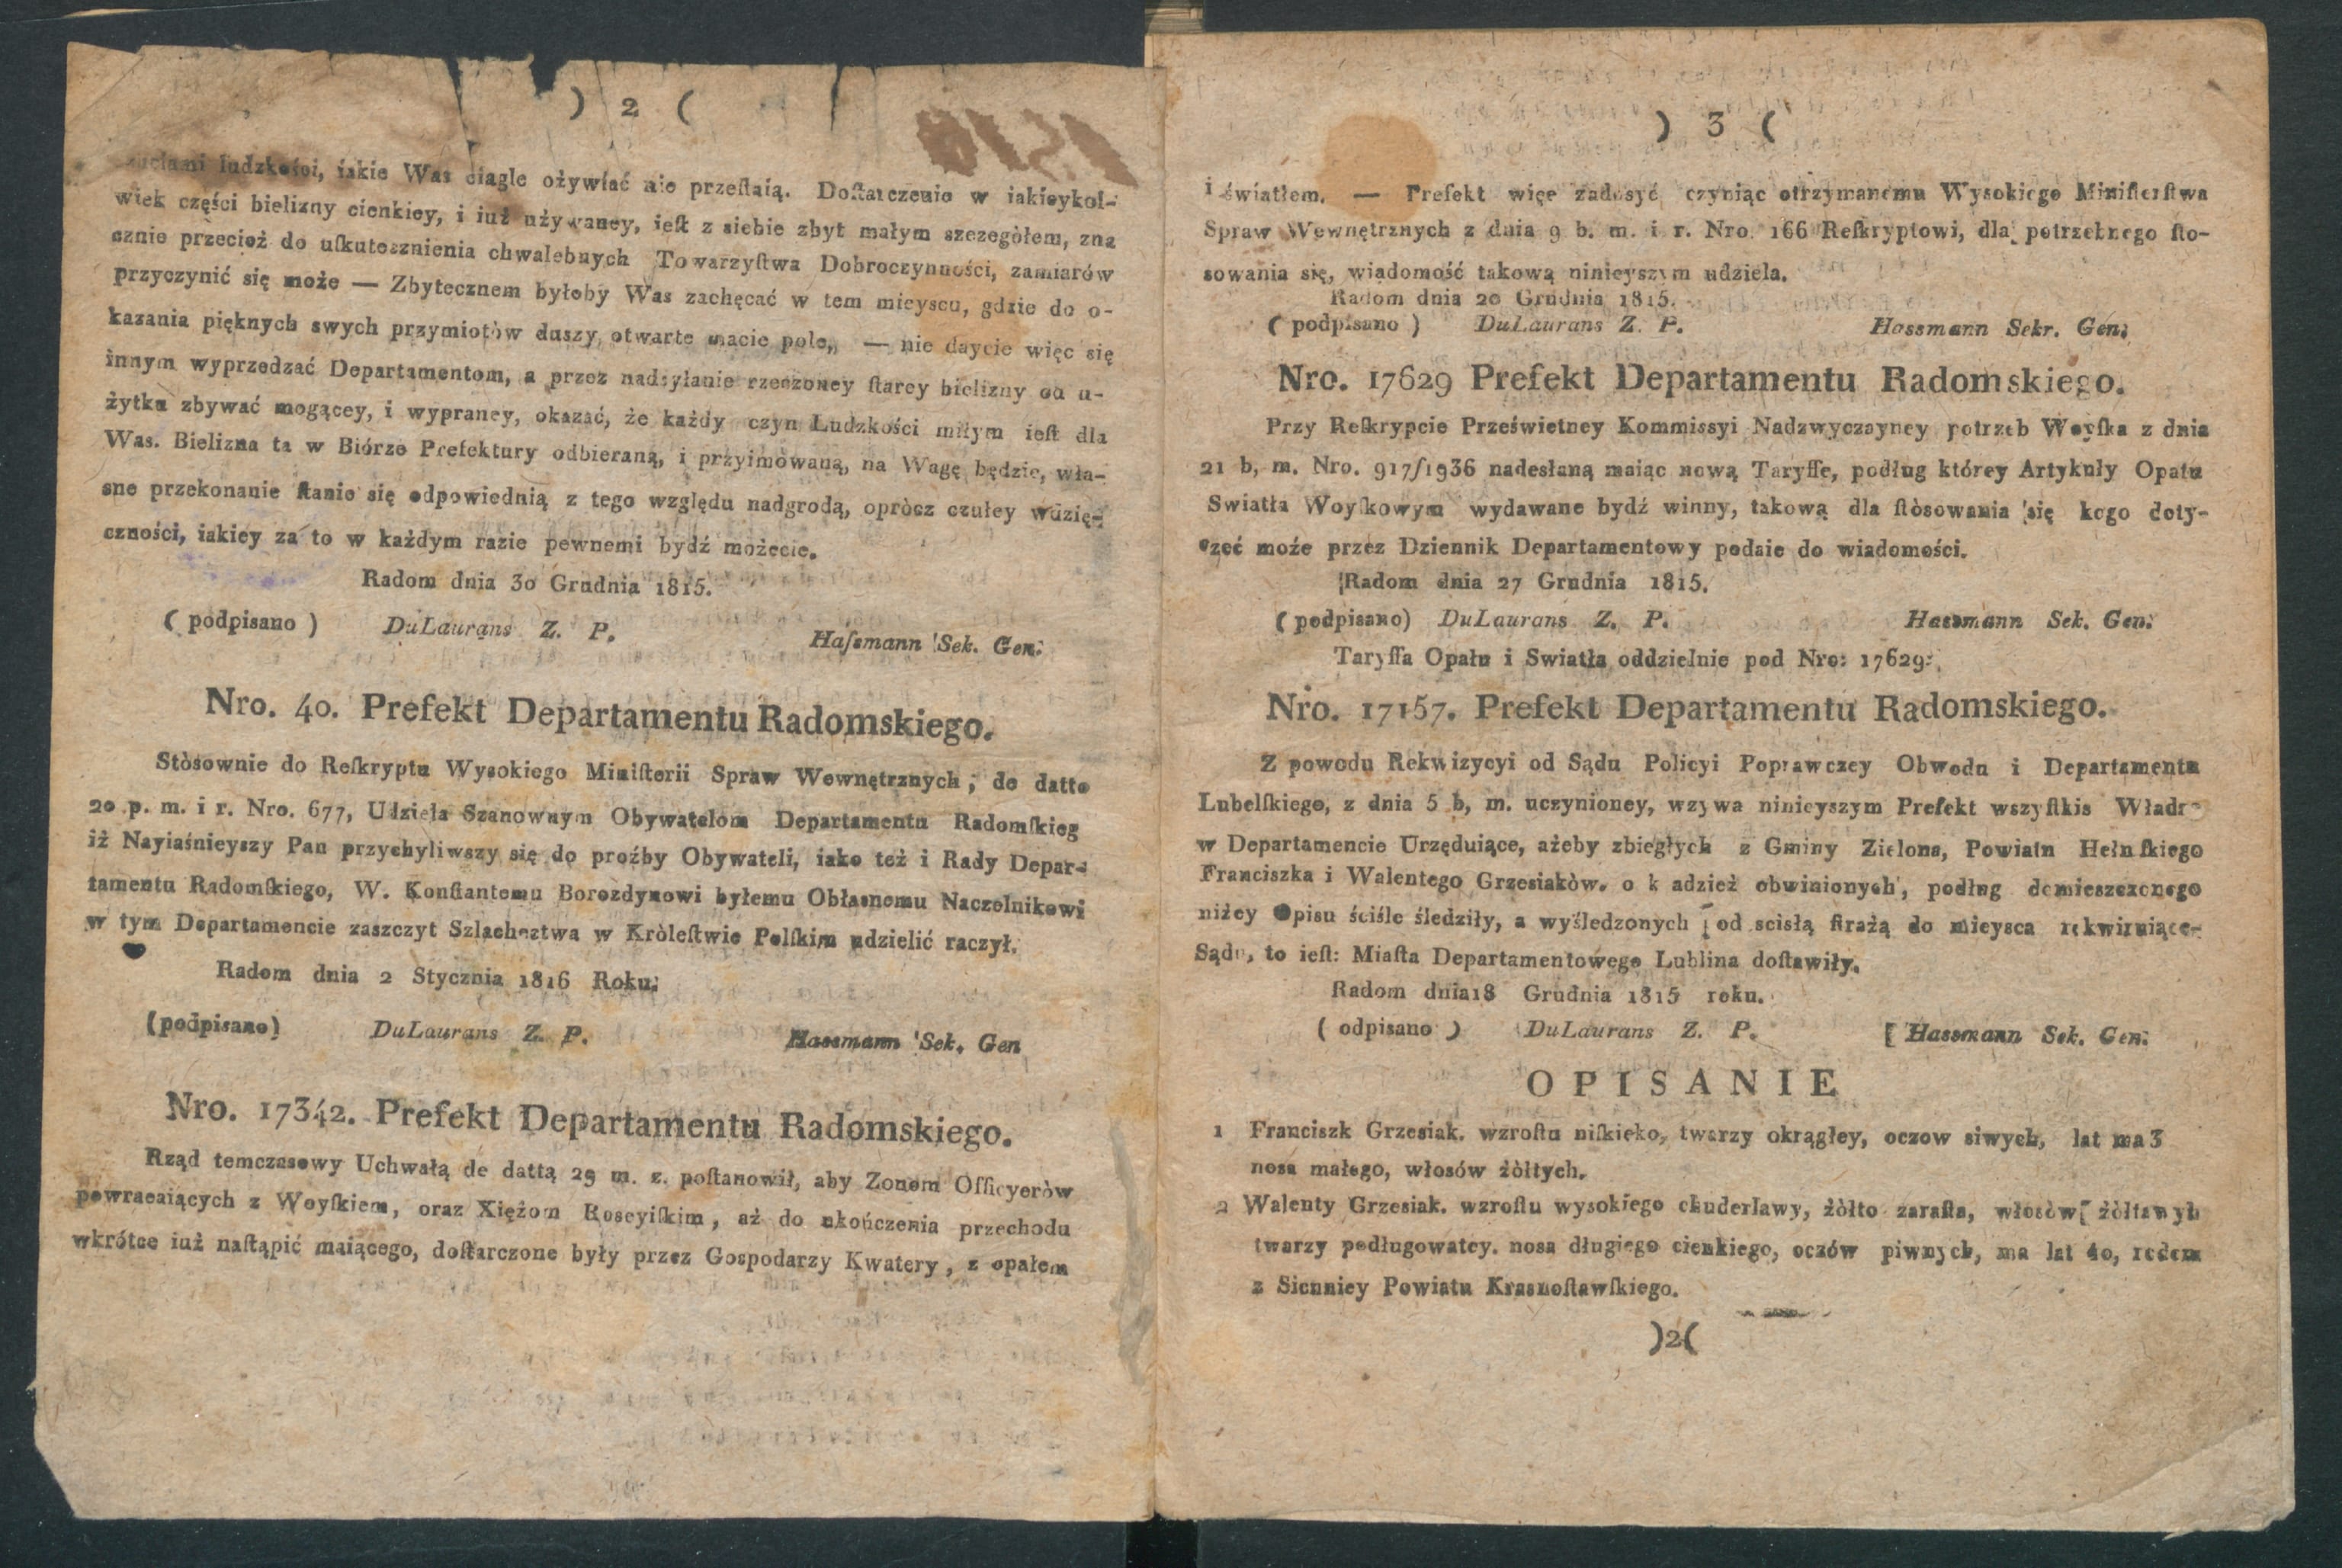 ) 2 (
ludzkości, iakie Was ciągle ożywiać nie przeſtaią. Doſtarczenie w iakieykol-
wiek części bielizny cienkiey, i iuż używaney, ieſt z siebie zbyt małym szczegòłem, zna
cznie przecież do uſkutecznienia chwalebnych Towarzyſtwa Dobroczynności, zamiarów
przyczynić się może — Zbytecznem byłoby Was zachęcać w tem mieyscu, gdzie do o-
kazania pięknych swych przymiotòw duszy, otwarte macie pole„ — nie daycie więc się
innym wyprzedzać Departamentom, a przez nadsyłanie rzeczoney ſtarey bielizny od u-
żytku zbywać mogącey, i wypraney, okazać, że każdy czyn Ludzkości miłym ieſt dla
Was. Bielizna ta w Biórze Prefektury odbieraną, i przyimowaną, na Wagę będzie, wła-
sne przekonanie ſtanie się odpowiednią z tego względu nadgrodą, opròcz czułey wdzię-
czności, iakiey za to w każdym razie pewnemi bydź możecie.
Radom dnia 30 Grudnia 1815.
( podpisano ) DuLaurans Z. P. Haſsmann Sek. Gen.
Nro. 40. Prefekt Departamentu Radomskiego.
Stòsownie do Reſkryptu Wysokiego Miniſterii Spraw Wewnętrznych, de datto
20 p. m. i r. Nro. 677, Udziela Szanownym Obywatelom Departamentu Radomſkieg
iż Nayiaśnieyszy Pan przychyliwszy się do proźby Obywateli, iako też i Rady Depar-
tamentu Radomſkiego, W. Konſtantemu Borozdynowi byłemu Obłasnemu Naczelnikowi
w tym Departamencie zaszczyt Szlachectwa w Kròleſtwie Polſkim udzielić raczył.
Radom dnia 2 Stycznia 1816 Roku.
(podpisano) DuLaurans Z. P. Hassmann Sek. Gen
Nro. 17342. Prefekt Departamentu Radomskiego.
Rząd temczasowy Uchwałą de dattą 29 m. z. poſtanowił, aby Zonom Officyeròw
powracaiących z Woyſkiem, oraz Xiężom Rosyiſkim, aż do ukończenia przechodu
wkrótce iuż naſtąpić maiącego, doſtarczone były przez Gospodarzy Kwatery, z opałem
) 3 (
i światłem. — Prefekt więc zadosyć czyniąc otrzymanemu Wysokiego Miniſterſtwa
Spraw Wewnętrznych z dnia 9 b. m. i r. Nro. 166 Reſkryptowi, dla potrzebnego ſto-
sowania się, wiadomość takową ninieyszym udziela.
Radom dnia 20 Grudnia 1815.
( podpisano ) DuLaurans Z. P. Hassmann Sekr. Gen.
Nro. 17629 Prefekt Departamentu Radomskiego.
Przy Reſkrypcie Prześwietney Kommissyi Nadzwyczayney potrzeb Woyſka z dnia
21 b, m. Nro. 917/1936 nadesłaną maiąc nową Taryffę, podług którey Artykuły Opału
Swiatła Woyſkowym wydawane bydź winny, takową dla ſtòsowania się kogo doty-
częć może przez Dziennik Departamentowy podaie do wiadomości.
Radom dnia 27 Grudnia 1815.
( podpisano) DuLaurans Z. P. Hassmann Sek. Gen.
Taryffa Opału i Swiatła oddzielnie pod Nro: 17629.
Nro. 17157. Prefekt Departamentu Radomskiego.
Z powodu Rekwizycyi od Sądu Policyi Poprawczey Obwodu i Departamentu
Lubelſkiego, z dnia 5 b, m. uczynioney, wzywa ninieyszym Prefekt wszyſtkis Władr
w Departamencie Urzęduiące, ażeby zbiegłych z Gminy Zielona, Powiatu Hełmſkiego
Franciszka i Walentego Grzesiaków. o k adzież obwinionych, podług domieszczonego
niżey Opisu ściśle śledziły, a wyśledzonych od scisłą ſtrażą do mieysca rekwiruiące-
Sądu, to ieſt: Miaſta Departamentowego Lublina doſtawiły.
Radom dnia18 Grudnia 1815 roku.
( odpisano ) DuLaurans Z. P. [ Hassmann Sek. Gen.
OPISANIE
1 Franciszk Grzesiak. wzroſtu niſkieko, twarzy okrągłey, oczow siwych, lat ma 3
nosa małego, włosów żòłtych.
2 Walenty Grzesiak. wzroſtu wysokiego chuderlawy, żòłto zaraſta, włosòw żòłtawyh
twarzy podługowatey. nosa długiego cienkiego, oczów piwnych, ma lat 40, rodem
z Siennicy Powiatu Krasnoſtawſkiego.
)2(